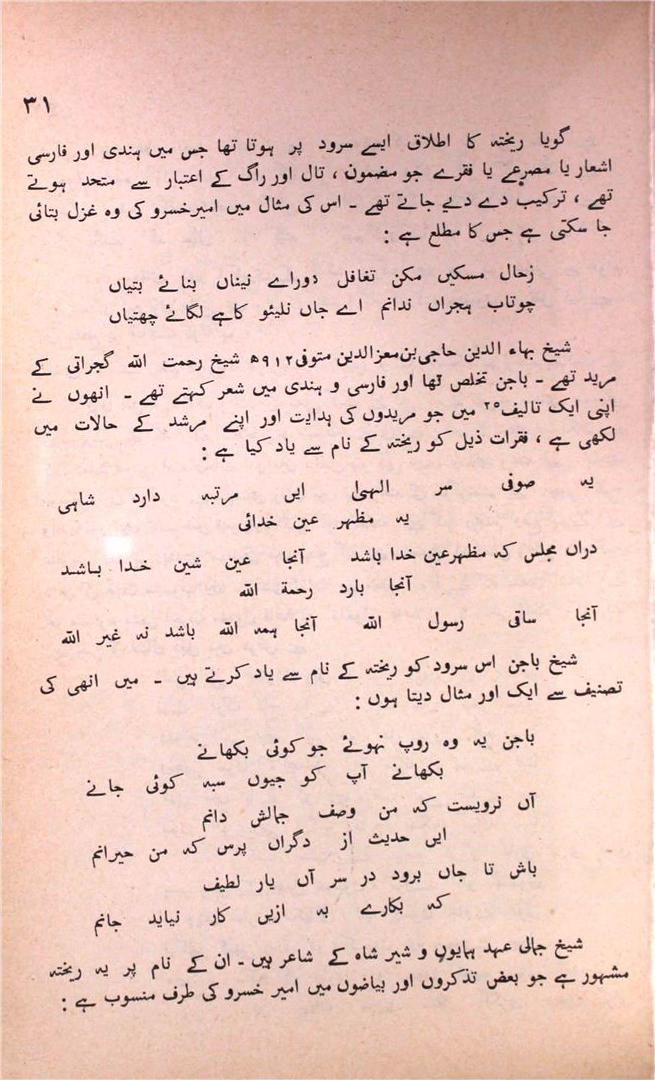 ۳۱
گویا ریختہ کا اطلاق ایسے سرود پر ہوتا تھا جس میں ہندی اور فارسی
اشعار یا مصرعے یا فقرے جو مضمون ، تال اور راگ کے اعتبار سے متحد ہوتے
تھے ، ترکیب دے دیے جاتے تھے ۔ اس کی مثال میں امیر خسرو کی وہ غزل بتائی
جا سکتی ہے جس کا مطلع ہے :
زحال مسکیں مکن تغافل دوراے نیناں بنائے بتیاں
چوتاب ہجراں ندانم اے جاں نلیئو کاہے لگائے چھتیاں
شیخ بہاء الدین حاجی بن معزالدین متوفی ۹۱۲ھ شیخ رحمت اللہ گجراتی کے
مرید تھے ۔ باجن تخلص تھا اور فارسی و ہندی میں شعر کہتے تھے ۔ انھوں نے
اپنی ایک تالیف۲۵ میں جو مریدوں کی ہدایت اور اپنے مرشد کے حالات میں
لکھی ہے ، فقرات ذیل کو ریختہ کے نام سے یاد کیا ہے :
یہ صوفی سر الہیٰ ایں مرتبہ دارد شاہی
یہ مظہر عین خدائی
دراں مجلس کہ مظہر عین خدا باشد آنجا عین شین خدا باشد
آنجا بارد رحمۃ اللہ
آنجا ساقی رسول اللہ آنجا ہمہ اللہ باشد نہ غیر اللہ
شیخ باجن اس سرود کو ریختہ کے نام سے یاد کرتے ہیں ۔ میں انھی کی
تصنیف سے ایک اور مثال دیتا ہوں :
باجن یہ وہ روپ نہوئے جو کوئی بکھانے
بکھانے آپ کو جیوں سبہ کوئی جانے
آں نرویست کہ من وصف جمالش دانم
ایں حدیث از دگراں پرس کہ من حیرانم
باش تا جاں برود در سر آں یار لطیف
کہ بکارے بہ ازیں کار نیاید جانم
شیخ جمالی عہد ہمایوں و شیر شاہ کے شاعر ہیں ۔ ان کے نام پر یہ ریختہ
مشہور ہے جو بعض تذکروں اور بیاضوں میں امیر خسرو کی طرف منسوب ہے :